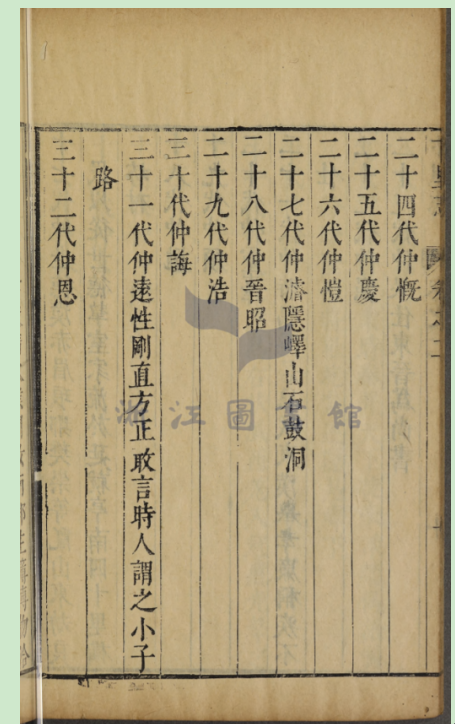 二十四代仲慨
二十五代仲慶
二十六代仲愷
二十七代仲濬隱嶧山石鼓洞
二十八代仲晉昭
二十九代仲浩
三十代仲誨
三十一代仲逵性剛直方正敢言時人謂之小子
路
三十二代仲恩
浙江圖書館